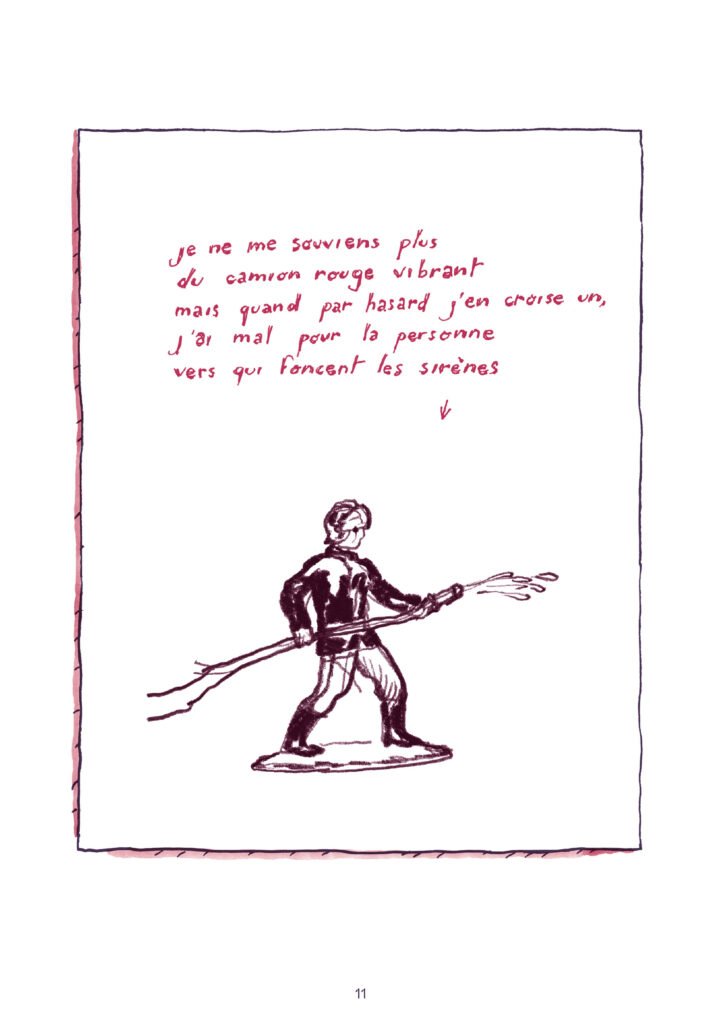 je ne me souviens plus
du camion rouge vibrant
mais quand par hasard j'en croise un,
j'ai mal pour la personne
vers qui foncent les sirènes
11